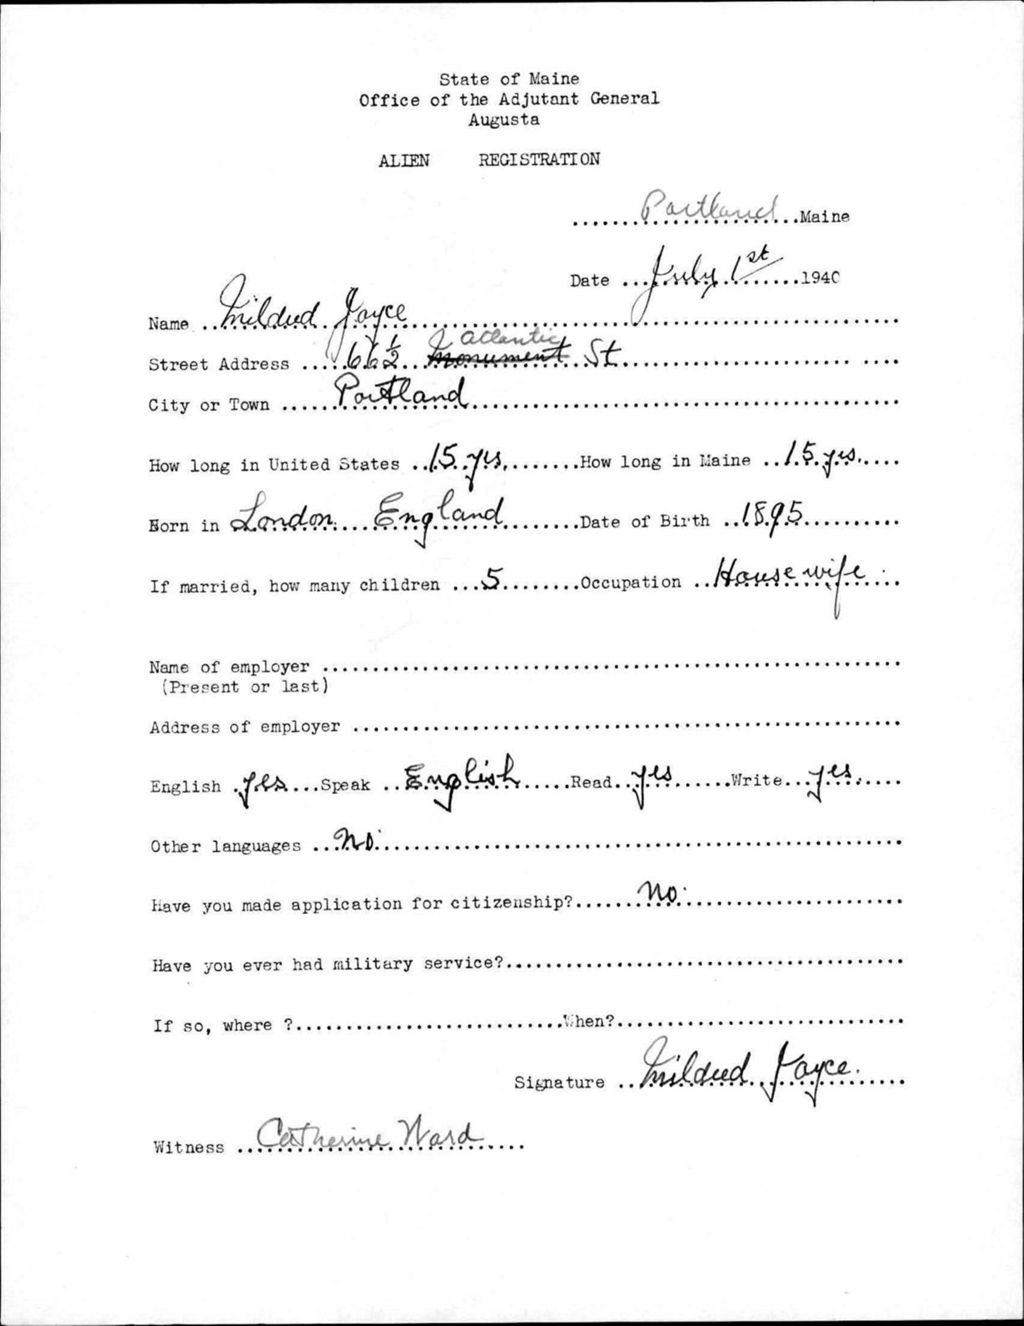 State of Maine
Office of the Adjutant General
Augusta
ALIEN REGISTRATION
Portland Maine
Date July 1st 1940
Name Mildred Joyce
Street Address 66½ Monument Atlantic St
City or Town Portland
How long in United States 15 yrs. How long in Maine 15 yrs.
Born in London England Date of Birth 1895
If married, how many children 5 Occupation House wife
Name of employer
(Present or last)
Address of employer
English yes Speak English Read yes Write yes
Other languages No
Have you made application for citizenship? No
Have you ever had military service?
If so, where ? When?
Signature Mildred Joyce
Witness Catherine Ward